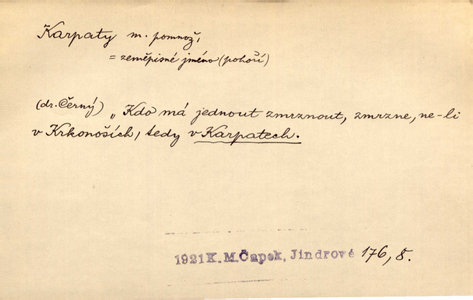 Karpaty m. pomnož.
= zeměpisné jméno (pohoří)
(dr. Černý) „Kdo má jednout zmrznout, zmrzne, ne-li
v Krkonoších, tedy v Karpatech.
1921 K. M. Čapek, Jindrové 176, 8.